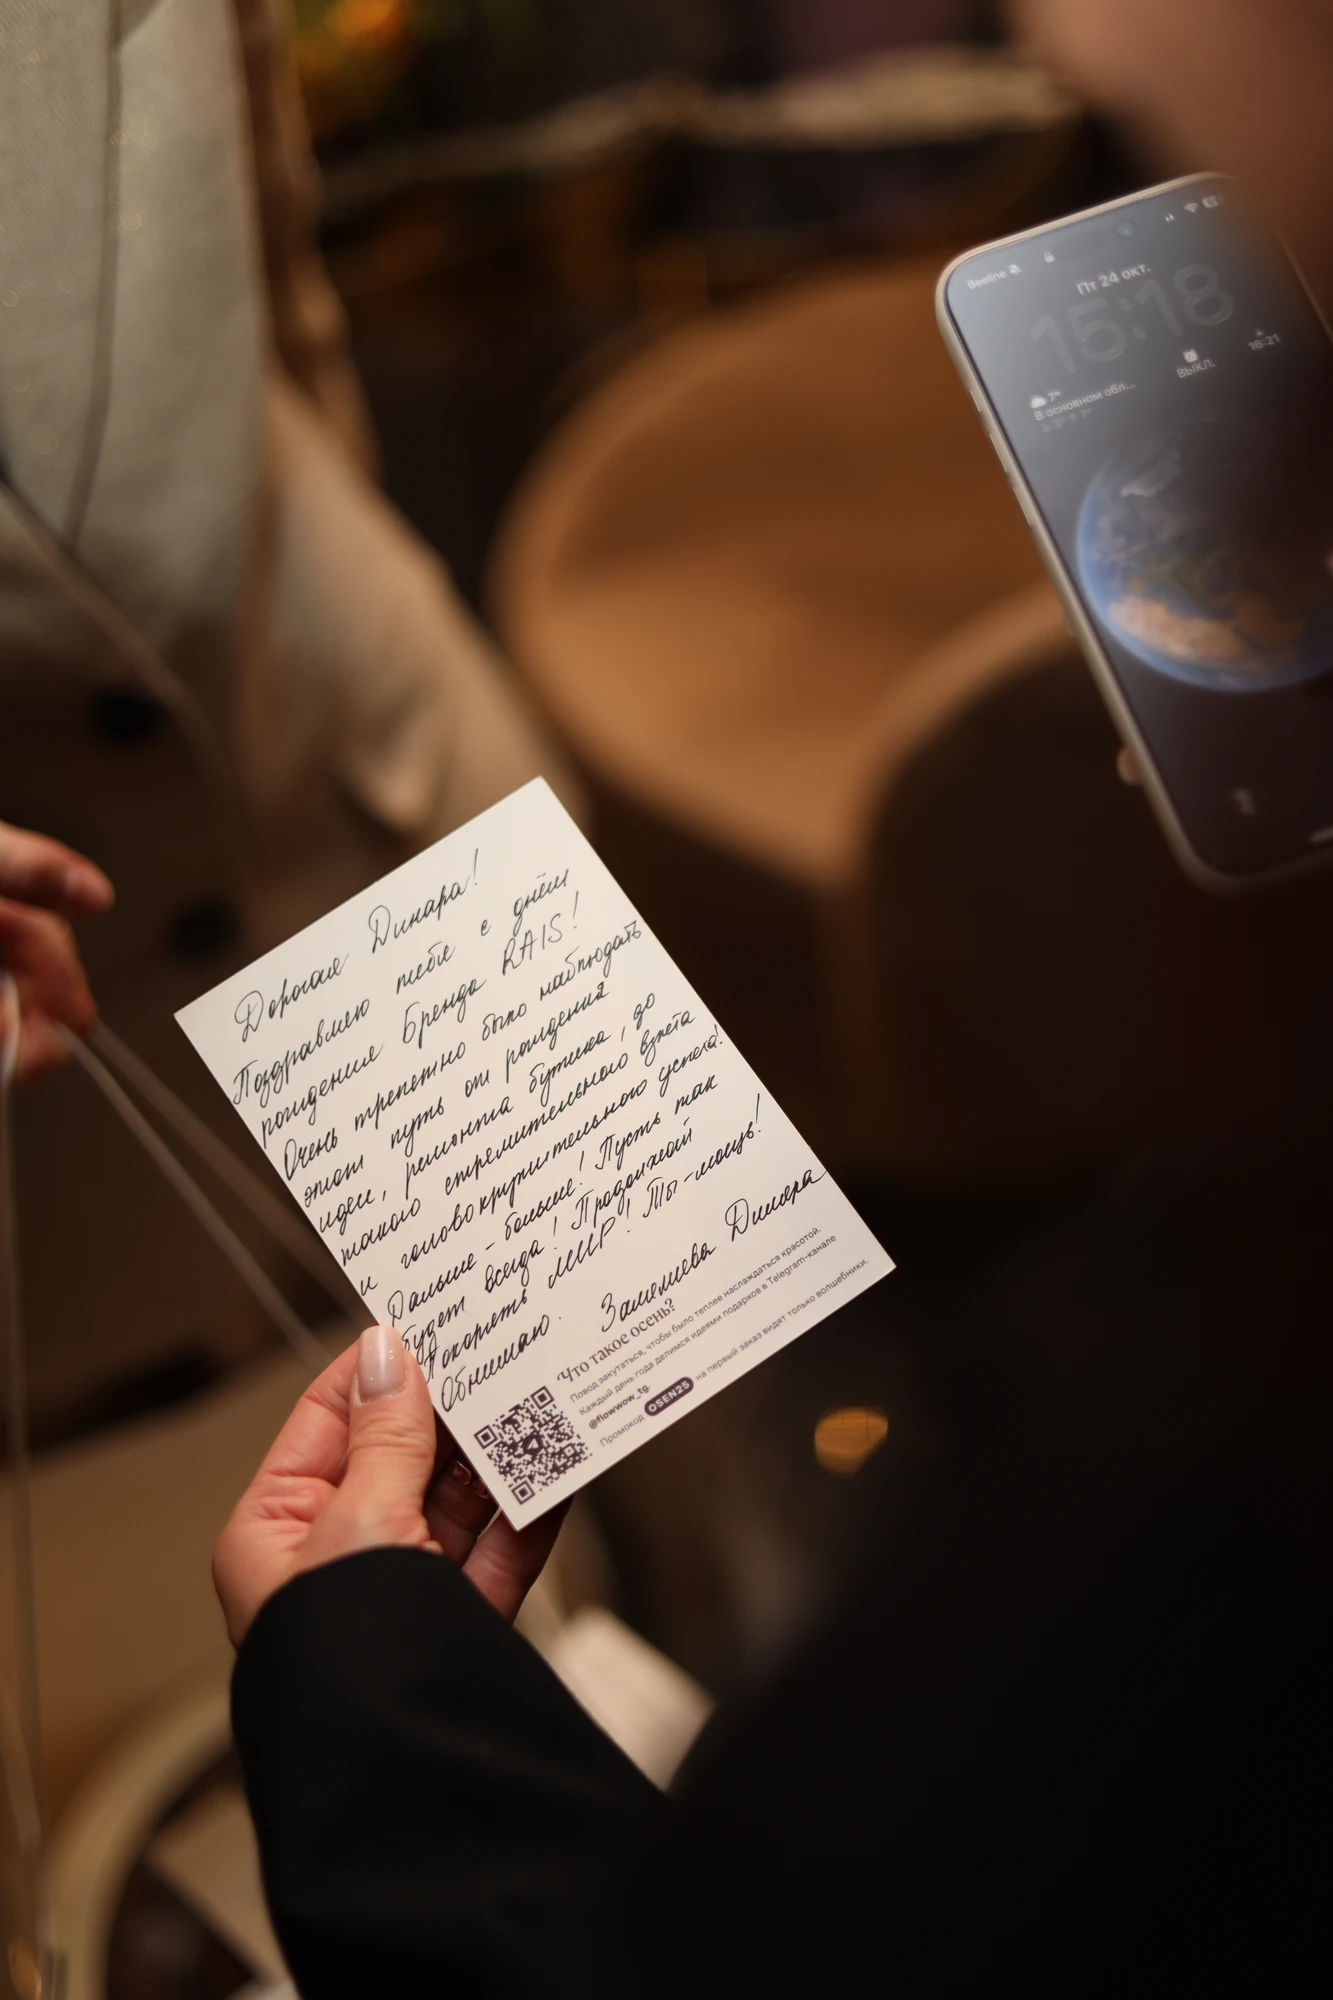 Beeline
Пт 24 окт.
15:18
7°
В основном обл...
↓3° ↑7°
ВЫКЛ.
16:21
Дорогая Динара!
Поздравляю тебя с днём
рождения Бренда RAIS!
Очень трепетно было наблюдать
этот путь от рождения
идеи, ремонта бутика, до
такого стремительного взлета
и головокружительного успеха!
Дальше - больше! Пусть так
будет всегда! Продолжай
Покорять МИР! Ты-мощь!
Обнимаю. Замелиева Динара
Что такое осень?
Повод закутаться, чтобы было теплее наслаждаться красотой.
Каждый день года делимся идеями подарков в Telegram-канале
@flowwow_tg.
Промокод OSEN25 на первый заказ видят только волшебники.